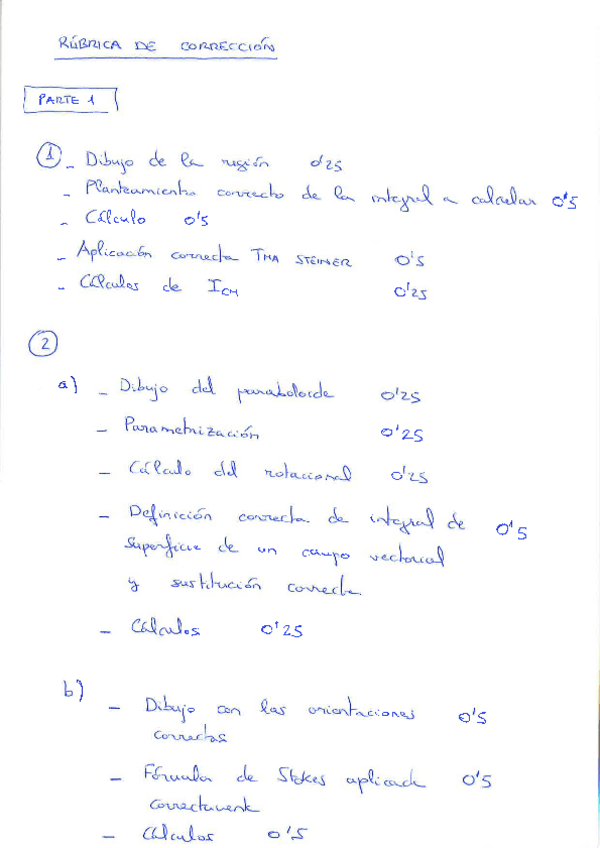 RÚBRICA DE CORRECCIÓN
PARTE 1
1 - Dibujo de la región 0'25
- Planteamiento correcto de la integral a calcular 0'5
- Cálculo 0'5
- Aplicación correcta TMA STEINER 0'5
- Cálculos de ICM 0'25
2
a) - Dibujo del paraboloide 0'25
- Parametrización 0'25
- Cálculo del rotacional 0'25
- Definición correcta de integral de 0'5
superficie de un campo vectorial
y sustitución correcta
- Cálculos 0'25
b) - Dibujo con las orientaciones 0'5
correctas
- Fórmula de Stokes aplicada 0'5
correctamente
- Cálculos 0'5